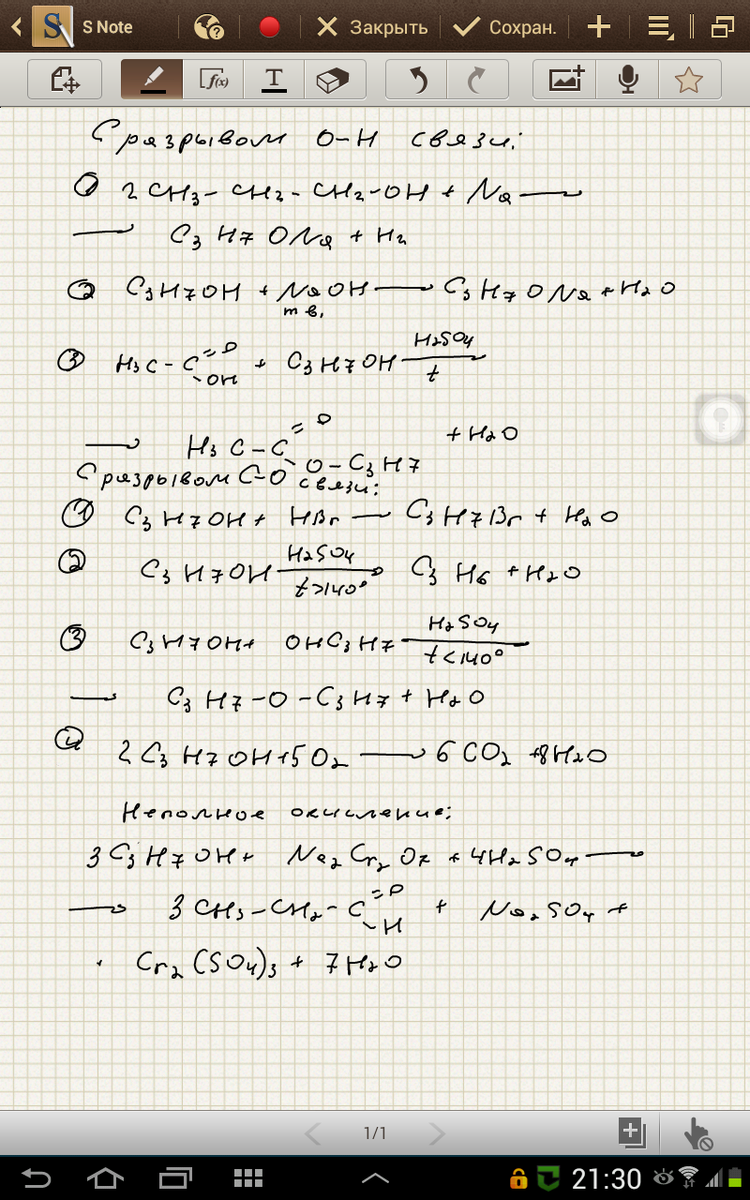 S Note
Закрыть
Сохран.
f(x)
T
С разрывом O-H связи:
① 2 CH3 - CH2 - CH2-OH + Na ⟶
⟶ C3 H7 ONa + H2
② C3H7OH + NaOH ⟶ C3 H7 ONa + H2O
тв.
H2SO4
③ H3C - C =O -OH + C3H7OH ⟶
t
⟶ H3 C - C =O -O-C3H7 + H2O
С разрывом C-O связи:
① C3 H7OH + HBr ⟶ C3 H7Br + H2O
H2SO4
② C3 H7OH ⟶ C3 H6 + H2O
t>140°
H2SO4
③ C3H7OH+ OHC3H7 ⟶
t<140°
⟶ C3 H7-O-C3H7 + H2O
④ 2 C3 H7OH+5O2 ⟶ 6CO2 +8H2O
Неполное окисление:
3C3H7OH+ Na2Cr2O7 +4H2SO4 ⟶
⟶ 3CH3-CH2-C =O -H + Na2SO4 +
+ Cr2(SO4)3 + 7H2O
1/1
21:30